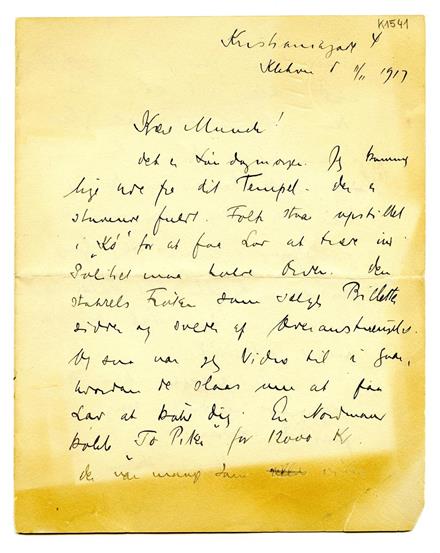 K1541
Kristianiagade 4
Kbhvn Ø 11/11 1917
Kære Munch!
Det er Lørdagmorgen. Jeg kommer
lige ude fra dit Tempel. Der er
stuvende fuldt. Folk staar opstillet
i "Kø" for at faa Lov at træde ind
Politiet maa holde Orden. Den
stakkels Frøken som sælger Billetter
sidder og sveder af Overanstrengelse.
Og saa var jeg Vidne til i Gaar,
hvordan de slaas um at faa
Lov at købe dig. En Nordmann
købte "To Piker" for 12000 Kr.
der var mange som